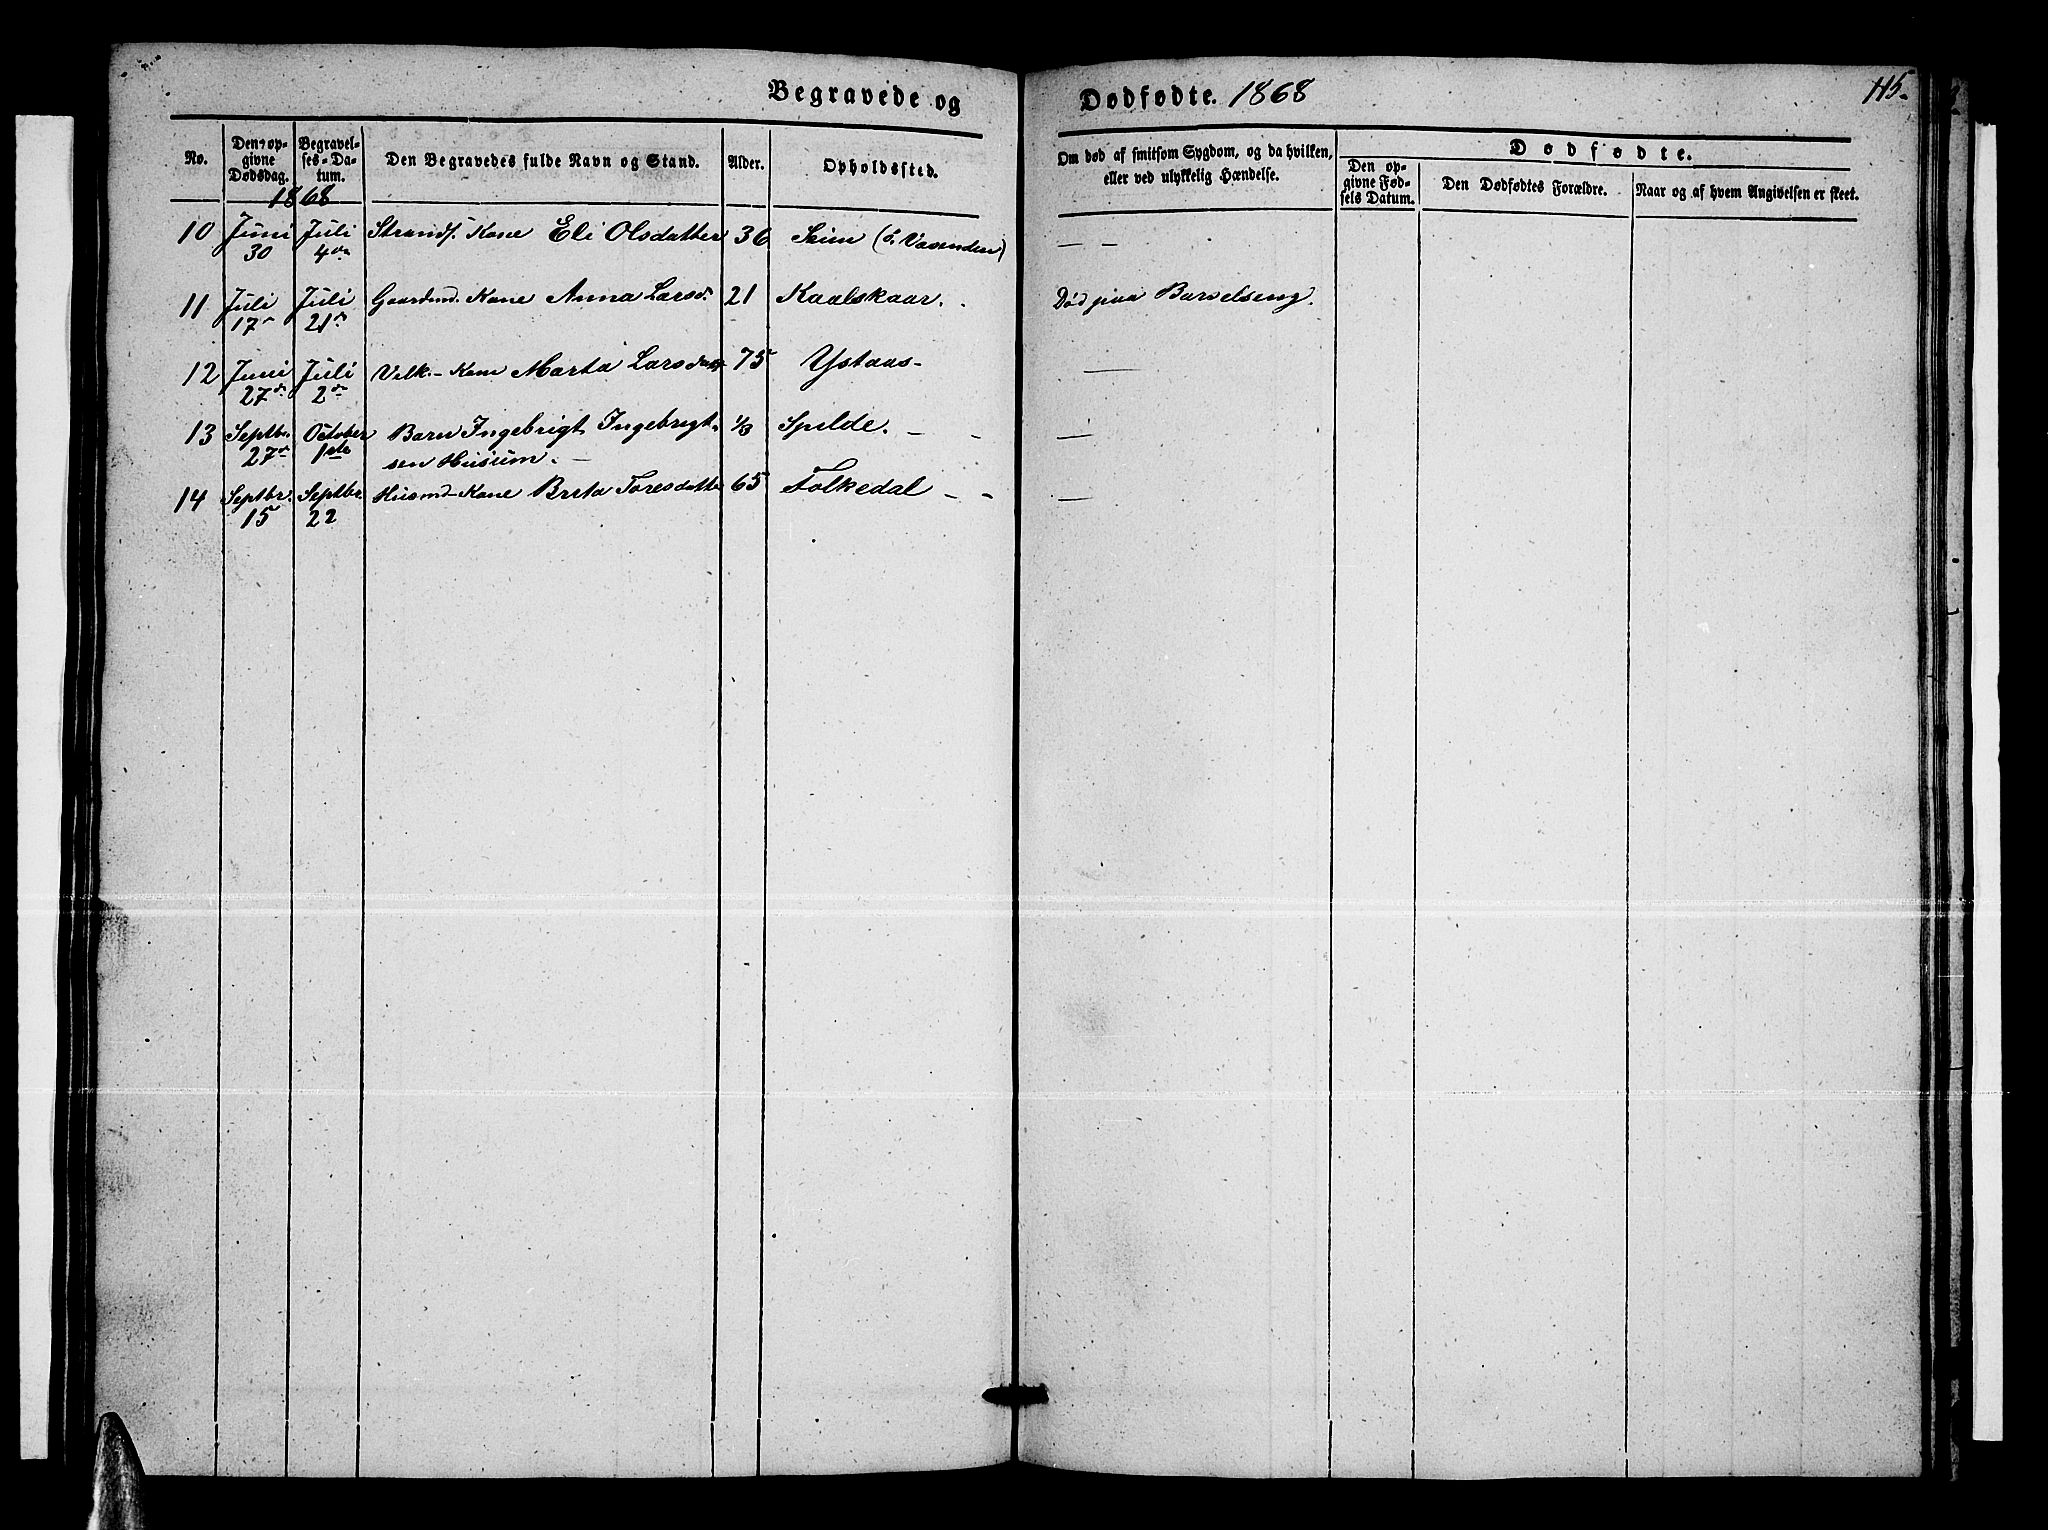 Begravede og
Dødfødte. 1868
115.
No.
Den opgivne Dødsdag.
Begravelses-Datum.
Den Begravedes fulde Navn og Stand.
Alder.
Opholdssted.
Om død af smitsom Sygdom, og da hvilken, eller ved ulykkelig Hændelse.
Dødfødte.
Den opgivne Fødsels Datum.
Den Dødfødtes Forældre.
Naar og af hvem Angivelsen er skeet.
1868
10 Juni 30 Juli 4de Strands. Kone Eli Olsdatter 36 Seim ( Vasenden) — —
11 Juli 17de Juli 21de Gaardmd. Kone Anna Larsd. 21 Kaalskaar. Død paa Barselseng.
12 Juni 27de Juli 2de Vilk.- Kone Marta Larsdatter 75 Ystaas- —
13 Septbr. 27de October 1ste Barn Ingebrigt Ingebrigt-
sen Husum. — 1/3 Spilde. — - —
14 Septbr. 15 Septbr. 22 Husmd-Kone Brita Toresdatter 65 Folkedal - - —